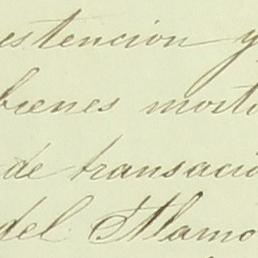 estencion y
bienes mort
de transacio
del Alamo